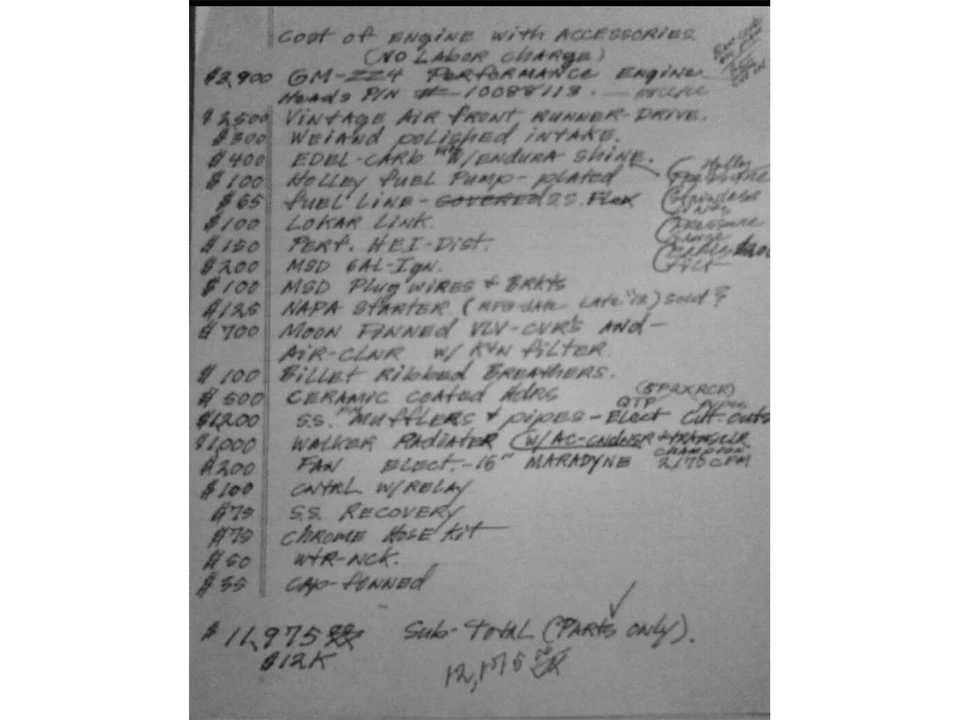 Cost of ENGINE with ACCESSORIES
(NO LABOR CHARGE)
$3,900 GM-ZZ4 PERFORMANCE ENGINE
Heads P/N #-10088113.
$2500 VINTAGE AIR front RUNNER-DRIVE.
$300 WEIAND polished INTAKE.
$400 EDEL-CARB W/ENDURA SHINE.
$100 Holley fuel Pump-plated
$65 fuel LINE-COVERED S.S. FLEX
$100 LOKAR LINK.
$150 PERF. HEI-DIST.
$200 MSD 6AL-Ign.
$100 MSD Plug wires + BRKTS
$125 NAPA STARTER (MFG-date LATE '13) sold?
$700 MOON FINNED VLV-CVR'S AND-
AIR-CLNR W/ K&N filter.
$100 Billet Ribbed BREATHERS.
$500 CERAMIC COATED Hdrs
$1,200 S.S. Mufflers + pipes-Elect Cut-outs
QTP
$1,000 WALKER RADIATER (W/AC-CNDNSR
CHAMPION
$200 FAN ELECT.-16" MARADYNE 2175 CFM
$100 CNTRL W/RELAY
$75 S.S. RECOVERY
$75 CHROME HOSE Kit
$50 WTR-NCK.
$35 CAP-finned
$11,975 Sub-Total (PARTS ONLY).
$12K
12,175
Holley
Pressure
Gauge